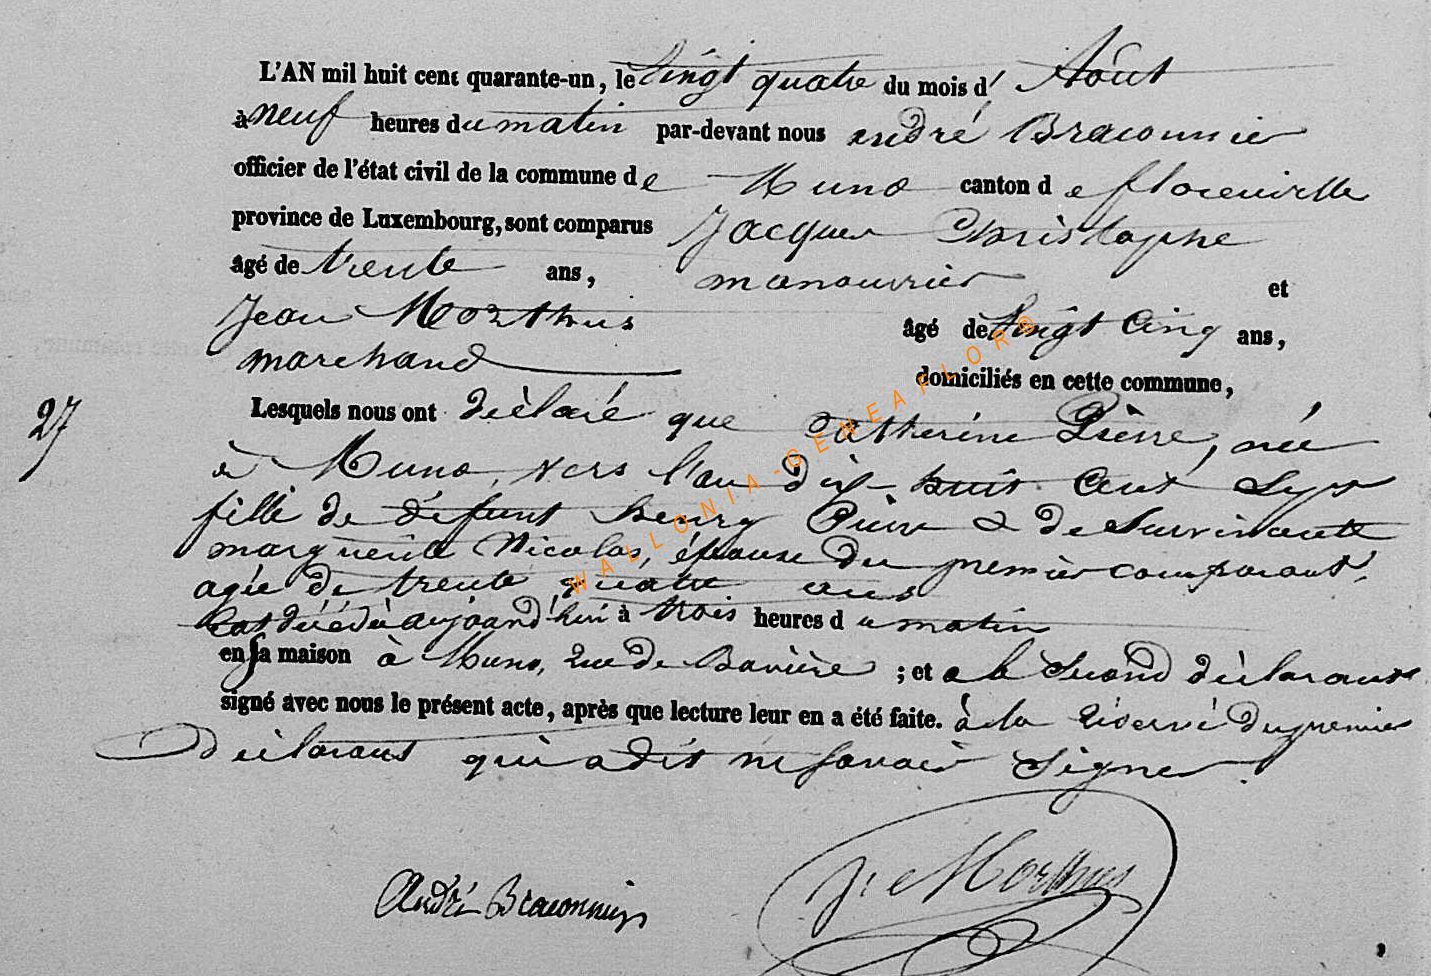 L'AN mil huit cent quarante-un, le vingt quatre du mois d' Août
à neuf heures du matin par-devant nous andré Braconnier
officier de l'état civil de la commune de Muno canton de florenville
province de Luxembourg, sont comparus Jacques Christophe
âgé de trente ans, manouvrier et
Jean Morthus âgé de vingt Cinq ans,
marchand domiciliés en cette commune,
27 Lesquels nous ont déclaré que Catherine Pierre, née
à Muno, vers l'an dix huit Cent Sept
fille de défunt henry Pierre & de Survivante
marguerite Nicolas, épouse du premier comparant,
agée de trente quatre ans
Est décédée aujourd'hui à trois heures du matin
en sa maison à Muno, rue de Bavière ; et a le Second déclarant
signé avec nous le présent acte, après que lecture leur en a été faite. à la réserve du premier
déclarant qui a dit ne savoir Signer.
J: Morthus
André Braconnier
WALLONIA-GENEAFLOR®